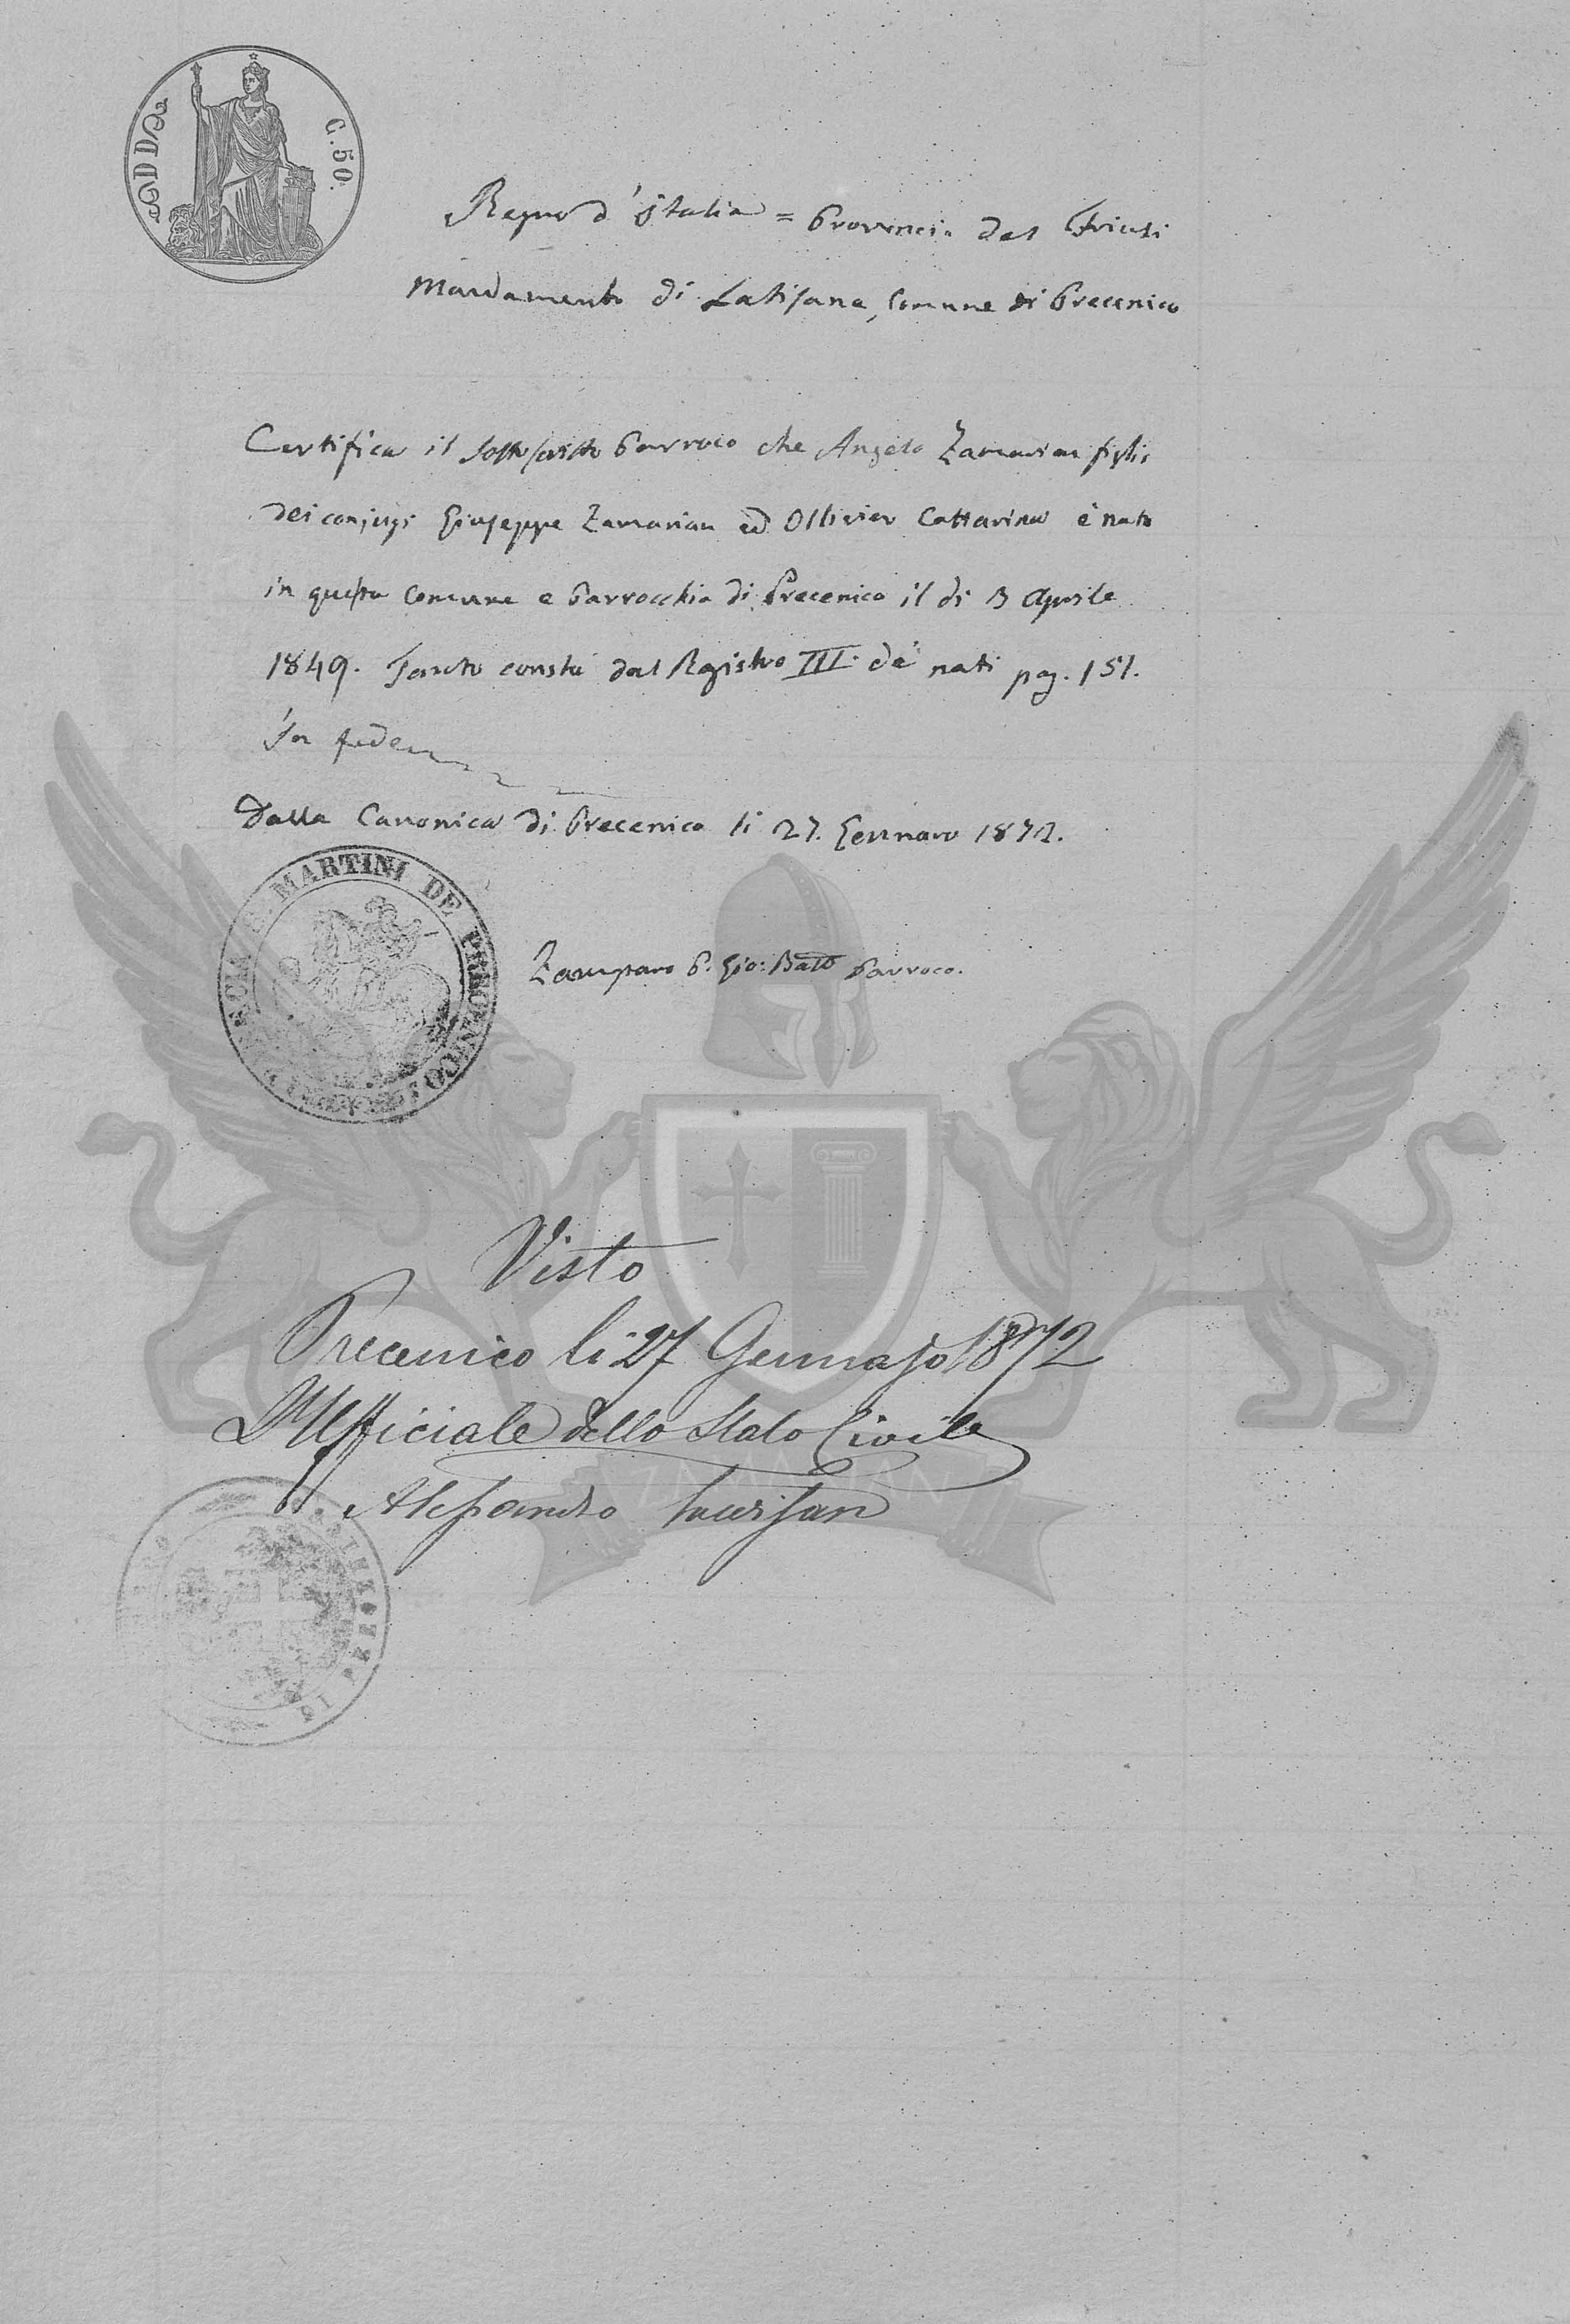 C. 50.
Regno d'Italia = Provincia del Friuli
Mandamento di Latisana, Comune di Precenico
Certifica il sottoscritto Parroco che Angelo Zamarian figlio
dei conjugi Giuseppe Zamarian ed Ollivier Cattarina è nato
in questa Comune e Parrocchia di Precenico il di 3 Aprile
1849. Tanto consta dal Registro III. de' nati pag. 151.
In fede
Dalla Canonica di Precenico li 27. Gennaro 1872.
S. MARTINI DE PRECENICO
Zamparo P. Gio: Batta Parroco.
Visto
Precenico li 27 Gennajo 1872
L'Ufficiale dello Stato Civile
Alessandro
DI PRECE